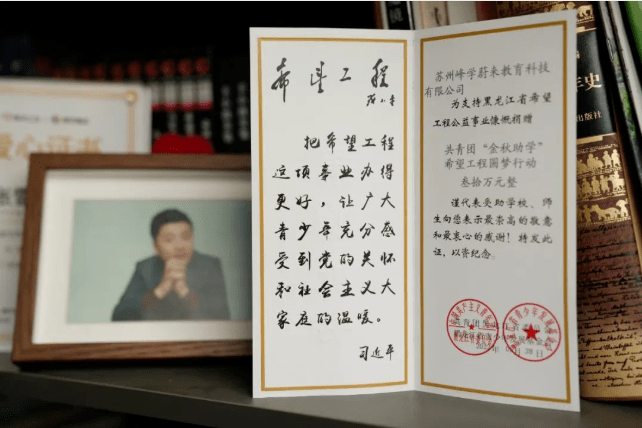 希望工程
邓小平
把希望工程
这项事业办得
更好，让广大
青少年充分感
受到党的关怀
和社会主义大
家庭的温暖。
习近平
苏州峰学蔚来教育科技
有限公司
为支持黑龙江省希望
工程公益事业慷慨捐赠
共青团“金秋助学”
希望工程圆梦行动
叁拾万元整
谨代表受助学校、师
生向您表示最崇高的敬意
和最衷心的感谢！特发此
证，以资纪念。
28日
心证书
年史
出版社